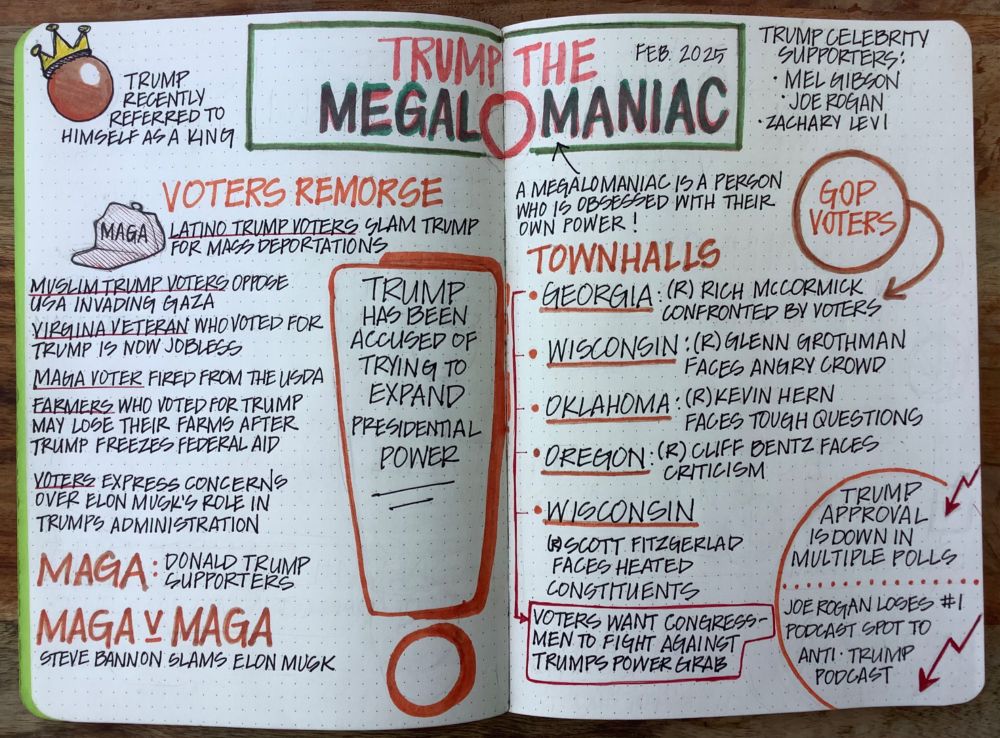 TRUMP
RECENTLY
REFERRED TO
HIMSELF AS A KING
TRUMP THE
FEB. 2025
MEGALOMANIAC
TRUMP CELEBRITY
SUPPORTERS:
• MEL GIBSON
• JOE ROGAN
• ZACHARY LEVI
VOTERS REMORSE
MAGA
LATINO TRUMP VOTERS SLAM TRUMP
FOR MASS DEPORTATIONS
MUSLIM TRUMP VOTERS OPPOSE
USA INVADING GAZA
VIRGINA VETERAN WHO VOTED FOR
TRUMP IS NOW JOBLESS
MAGA VOTER FIRED FROM THE USDA
FARMERS WHO VOTED FOR TRUMP
MAY LOSE THEIR FARMS AFTER
TRUMP FREEZES FEDERAL AID
VOTERS EXPRESS CONCERNS
OVER ELON MUSK'S ROLE IN
TRUMPS ADMINISTRATION
MAGA: DONALD TRUMP
SUPPORTERS
MAGA V MAGA
STEVE BANNON SLAMS ELON MUSK
TRUMP
HAS BEEN
ACCUSED OF
TRYING TO
EXPAND
PRESIDENTIAL
POWER
A MEGALOMANIAC IS A PERSON
WHO IS OBSESSED WITH THEIR
OWN POWER!
GOP
VOTERS
TOWNHALLS
• GEORGIA: (R) RICH McCORMICK
CONFRONTED BY VOTERS
• WISCONSIN: (R) GLENN GROTHMAN
FACES ANGRY CROWD
• OKLAHOMA: (R) KEVIN HERN
FACES TOUGH QUESTIONS
• OREGON: (R) CLIFF BENTZ FACES
CRITICISM
• WISCONSIN
(R) SCOTT FITZGERLAD
FACES HEATED
CONSTITUENTS
VOTERS WANT CONGRESS-
MEN TO FIGHT AGAINST
TRUMPS POWER GRAB
TRUMP
APPROVAL
IS DOWN IN
MULTIPLE POLLS
JOE ROGAN LOSES #1
PODCAST SPOT TO
ANTI-TRUMP
PODCAST